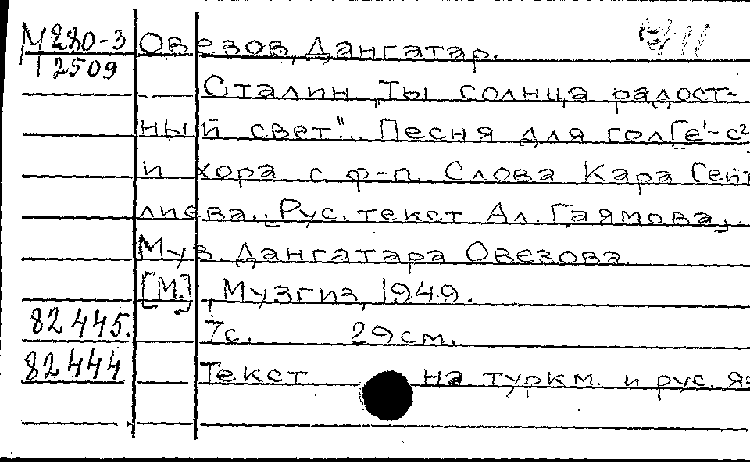 М 220-3 Овезов, Дангатар.
12509
Сталин „Ты солнца радост-
ный свет". Песня для гол[е'-с²
и хора с ф-п. Слова Кара Сейт
лиева. Рус. текст Ал. Гаямова.
Муз. Дангатара Овезова
[М.], Музгиз, 1949.
82445. 7с. 29см.
82444 Текст на туркм. и рус. яз